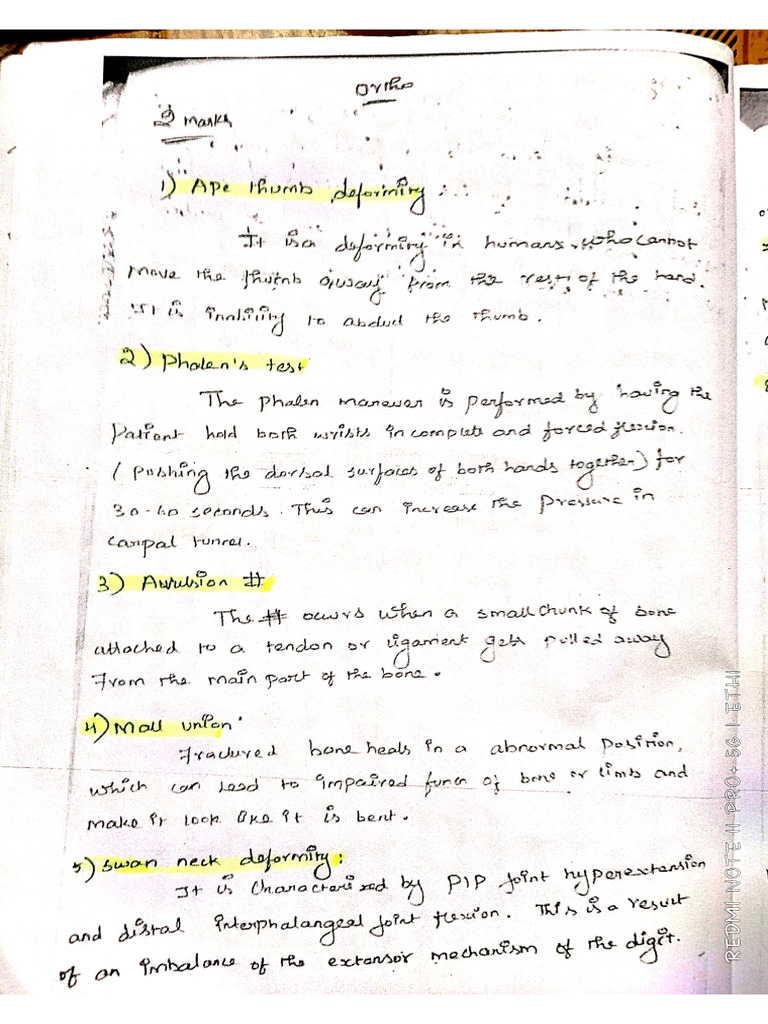 Ortho
2 Marks
1) Ape thumb deformity
It is a deformity in humans who cannot
move the thumb away from the rest of the hand.
It is inability to abduct the thumb.
2) Phalen's test
The phalen maneuver is performed by having the
Patient hold both wrists in complete and forced flexion.
(pushing the dorsal surfaces of both hands together) for
30-60 seconds. This can increase the Pressure in
carpal tunnel.
3) Avulsion #
The # occurs when a small chunk of bone
attached to a tendon or ligament gets pulled away
from the main part of the bone.
4) Mall union
Fractured bone heals in a abnormal position,
which can lead to impaired funcn of bone or limb and
make it look like it is bent.
5) Swan neck deformity:
It is characterized by PIP joint hyperextension
and distal interphalangeal joint flexion. This is a result
of an imbalance of the extensor mechanism of the digit.
REDMI NOTE 11 PRO+ 5G | ETHI